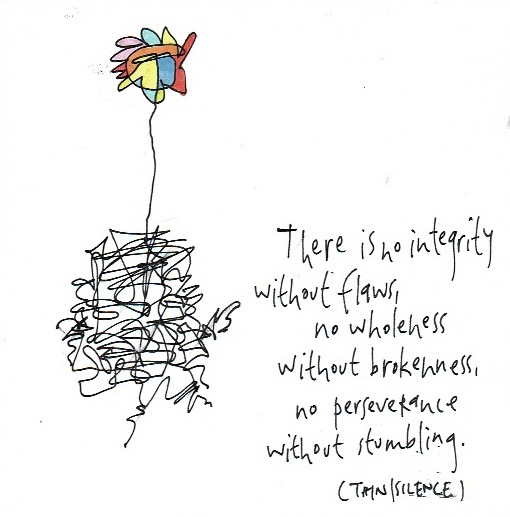 There is no integrity
without flaws,
no wholeness
without brokenness,
no perseverance
without stumbling.
(TMN/SILENCE)